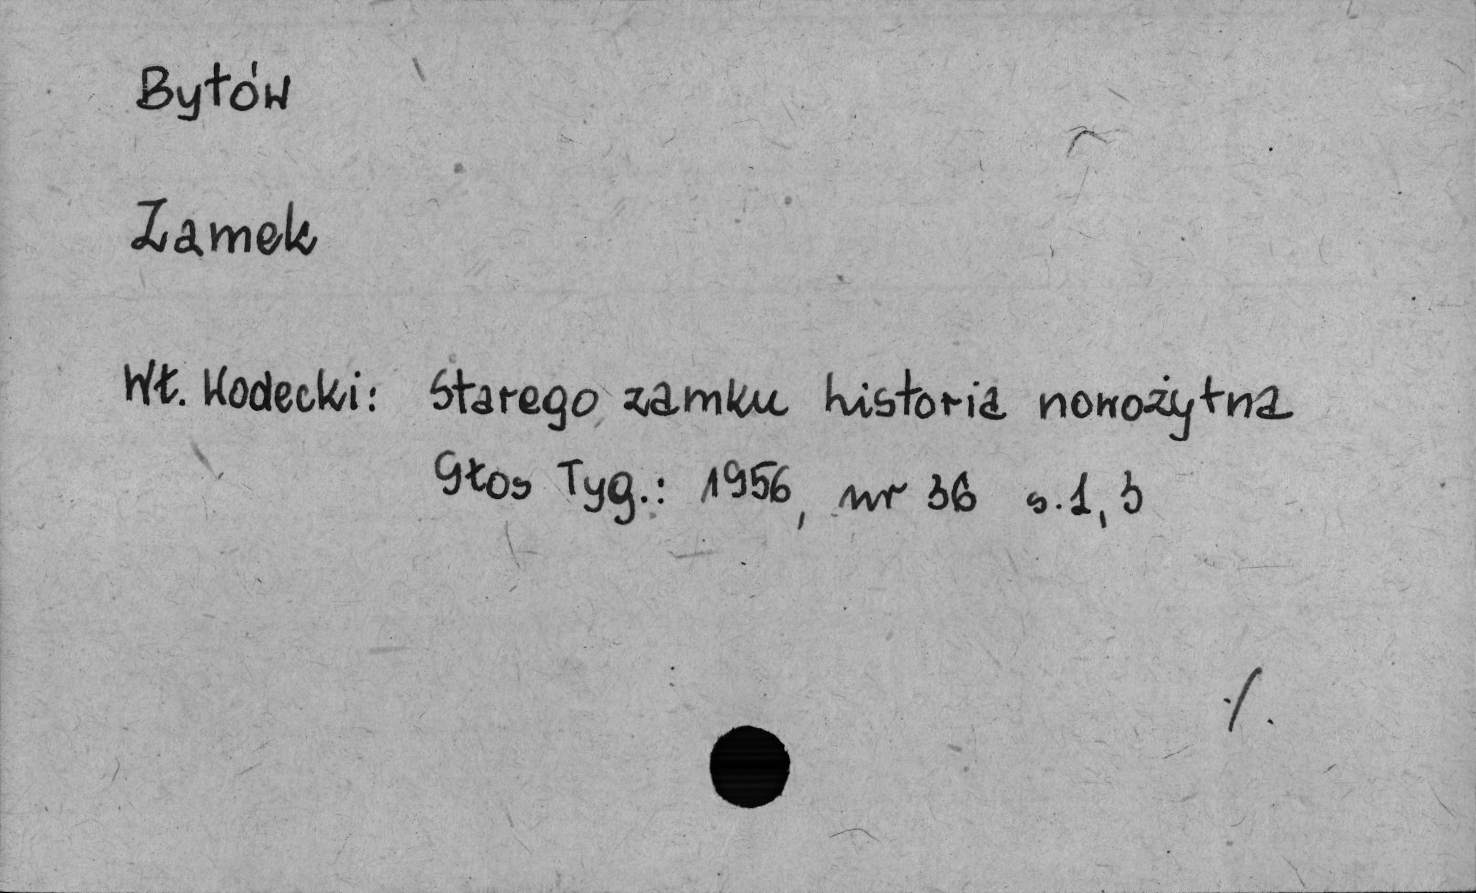 Bytów
Zamek
Wł. Wodecki: Starego zamku historia nowożytna
Głos Tyg.: 1956, nr 36 s. 1, 3
./.